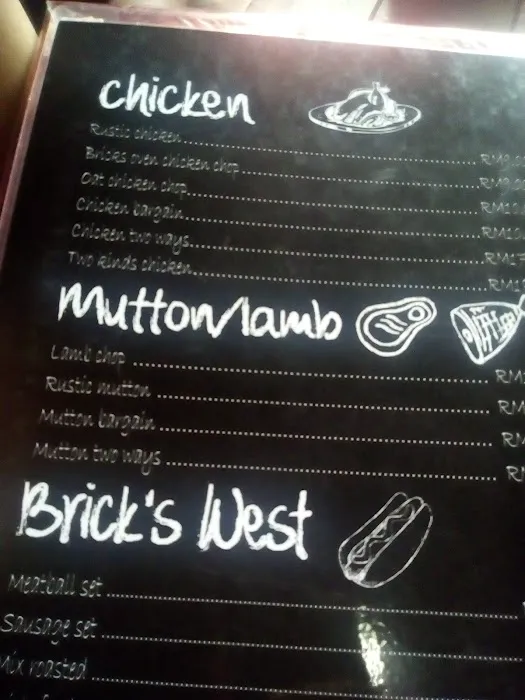 chicken
Rustic chicken
Bricks oven chicken chop
Oat chicken chop
Chicken bargain
Chicken two ways
Two kinds chicken
Mutton/lamb
Lamb chop
Rustic mutton
Mutton bargain
Mutton two ways
Brick's West
Meatball set
Sausage set
Mix roasted